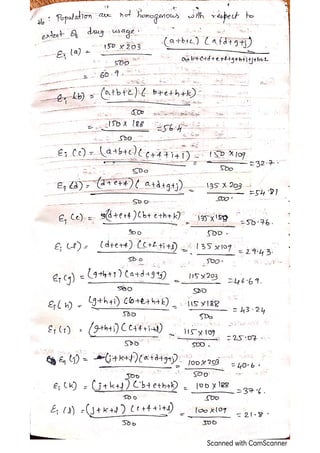 Population are not homogenous with respect to
extent of drug usage.
E₁ (a) = 150 x 203 / 500 (a+b+c) (a+d+g+j) / a+b+c+d+e+f+g+h+i+j+k+l
= 60.9
E₁ (b) = (a+b+c) ( b+e+h+k) / 500
= 150 x 188 / 500 = 56.4
E₁ (c) = (a+b+c) (c+f+i+l) / 500 = 150 x 109 / 500 = 32.7
E₁ (d) = (d+e+f) ( a+d+g+j) / 500 = 135 x 203 / 500 = 54.81
E₁ (e) = (d+e+f) (b+e+h+k) / 500 = 135 x 188 / 500 = 50.76
E₁ (f) = (d+e+f) (c+f+i+l) / 500 = 135 x 109 / 500 = 29.43
E₁ (g) = (g+h+i) (a+d+g+j) / 500 = 115 x 203 / 500 = 46.69
E₁ (h) = (g+h+i) (b+e+h+k) / 500 = 115 x 188 / 500 = 43.24
E₁ (i) = (g+h+i) (c+f+i+l) / 500 = 115 x 109 / 500 = 25.07
E₁ (j) = (j+k+l) (a+d+g+j) / 500 = 100 x 203 / 500 = 40.6
E₁ (k) = (j+k+l) (b+e+h+k) / 500 = 100 x 188 / 500 = 37.6
E₁ (l) = (j+k+l) (c+f+i+l) / 500 = 100 x 109 / 500 = 21.8
Scanned with CamScanner